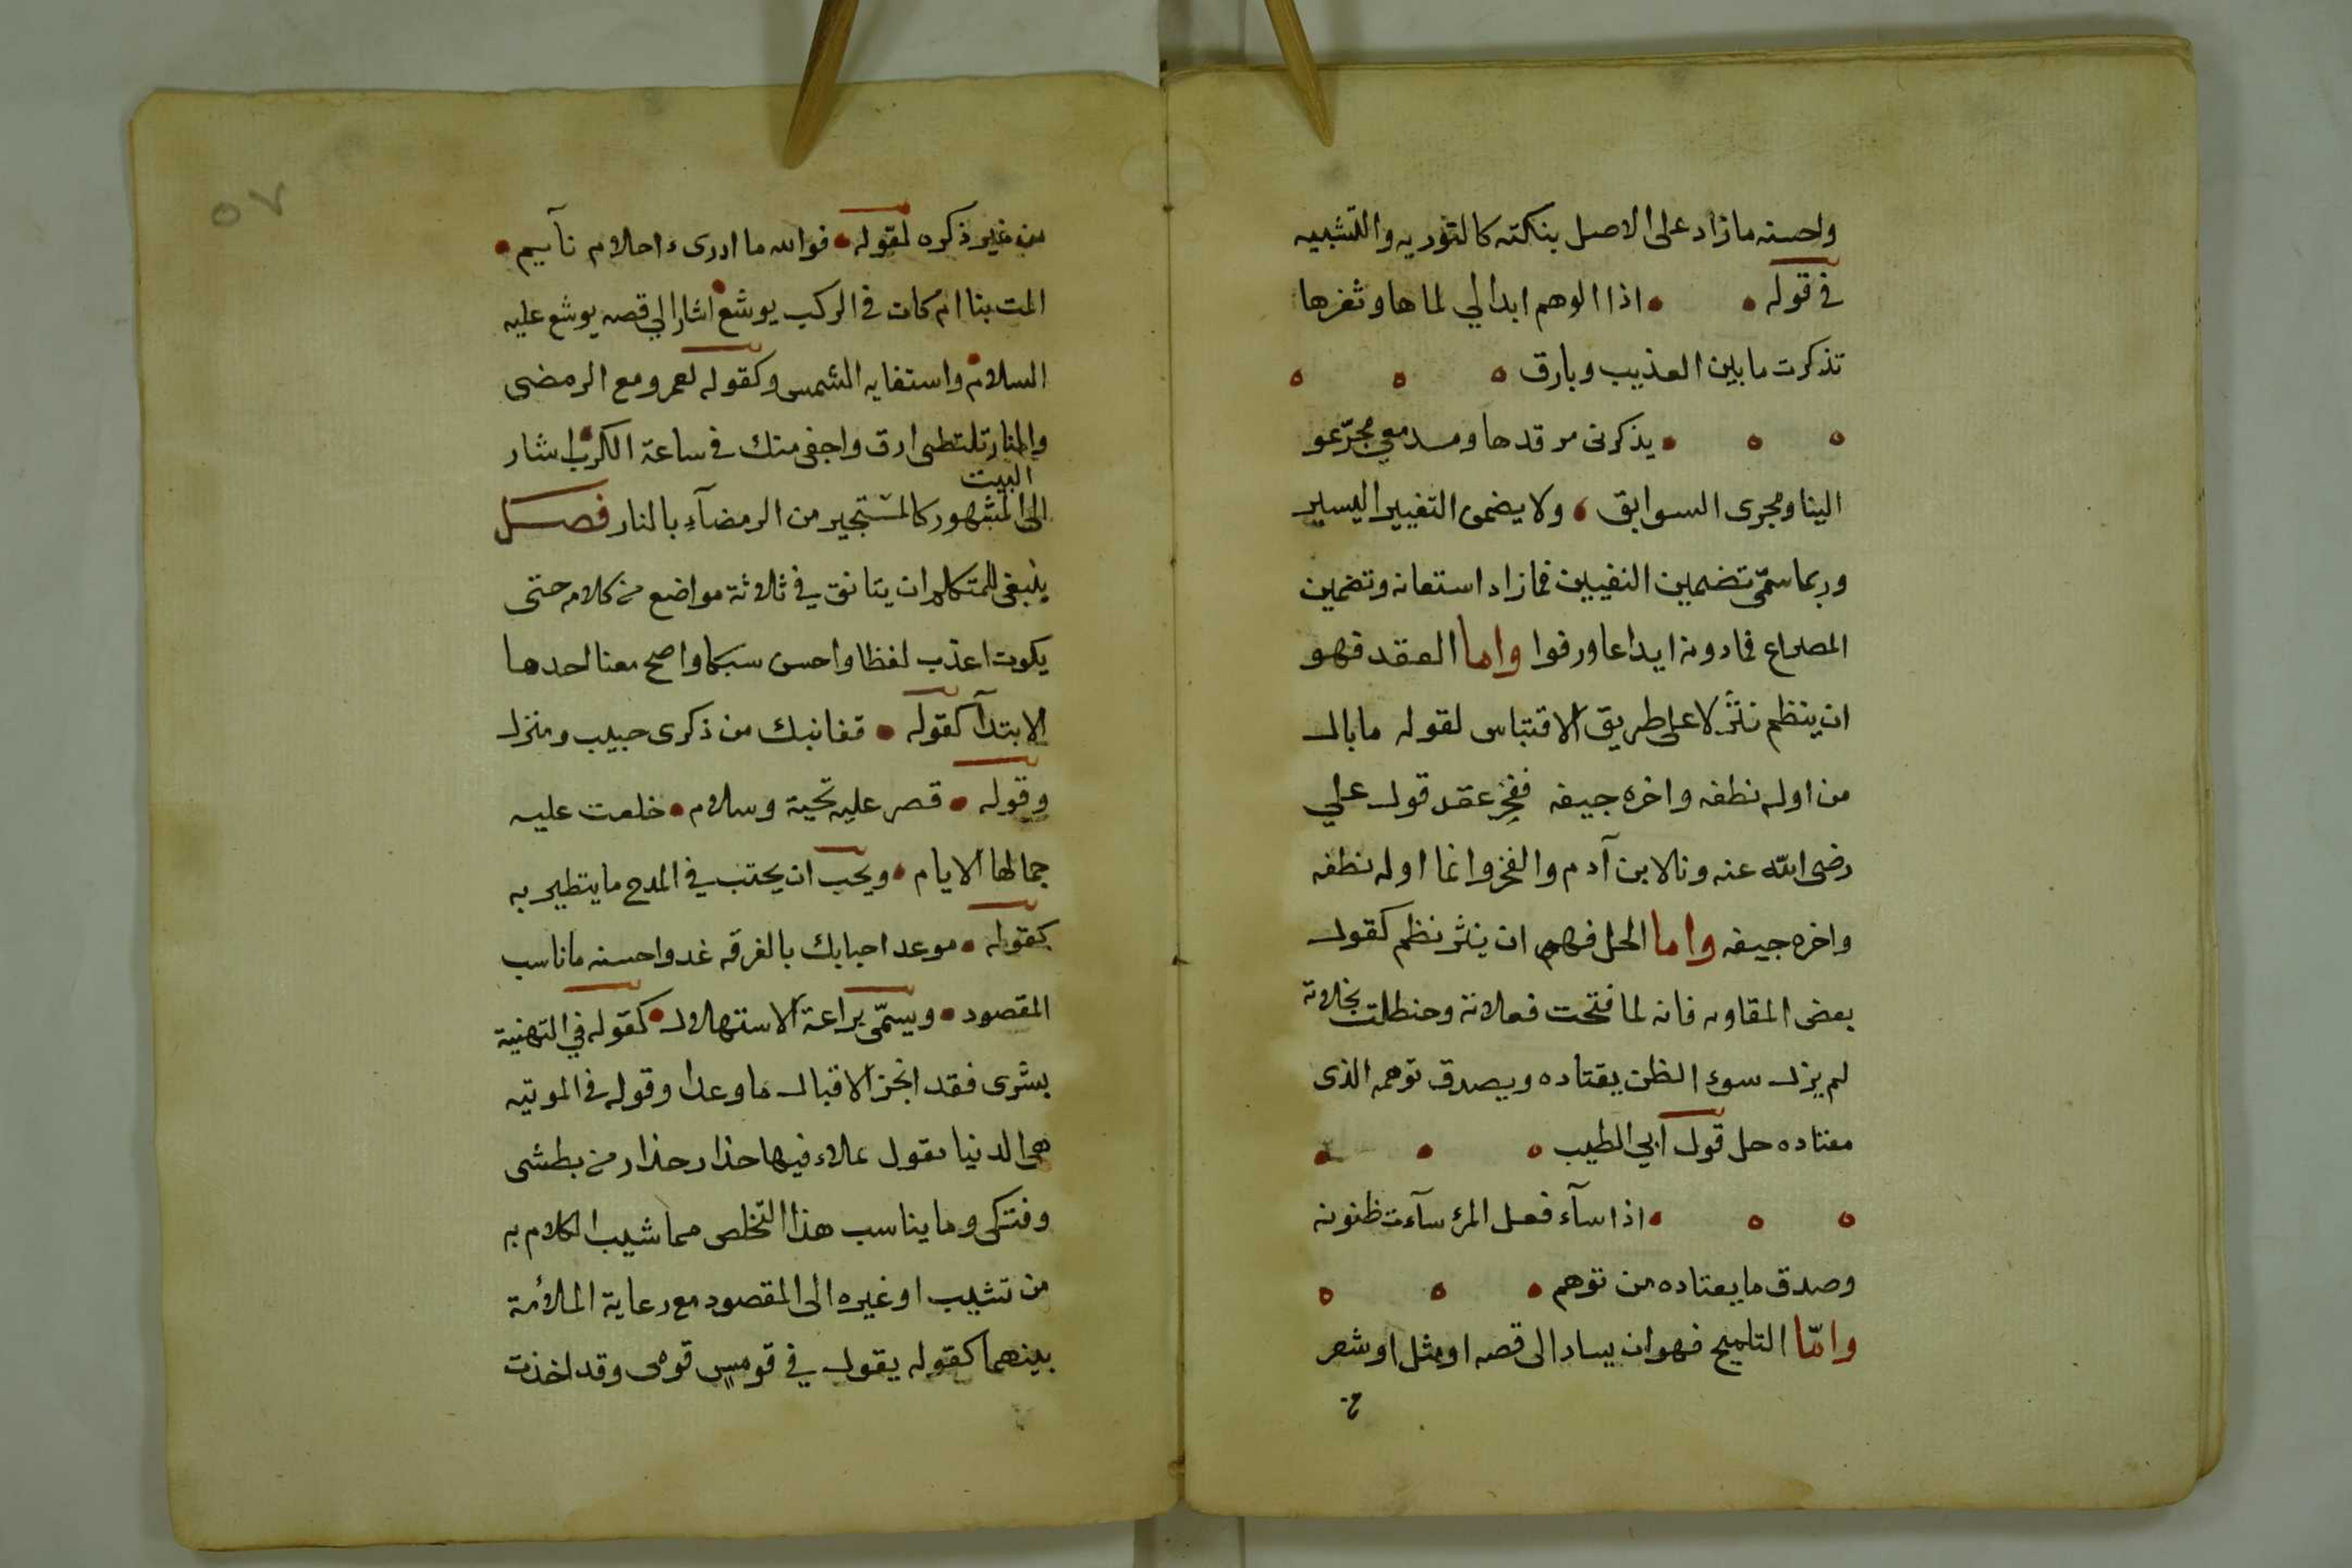 واحسنه ما زاد على الاصل بنكته كالتوريه والتشبيه
في قوله • • اذا الوهم ابدا لي لماها وثغرها
تذكرت ما بين العذيب وبارق • • •
• • • يذكرنى مر قدها ومدمعي مجرّعو
الينا ومجرى السوابق • ولا يضمى التغيير اليسير
وربما سمّى تضمين النفيين فما زاد استعانه وتضمين
المصراع فما دونه ايداعا ورفوا واما العقد فهو
ان ينظم نثرٌ لا على طريق الاقتباس لقوله ما بال
من اوله نطفه واخره جيفه ففخِر عقد قول علي
رضى الله عنه ونالابن آدم والفخر وانما اوله نطفه
واخره جيفه واما الحل فهو ان ينثر نظم كقول
بعض المقاوبه فانه لما فتحت فعلاته وحنظلت نخلاته
لم يزل سوء الظن يقتاده ويصدق توهمه الذى
معتاده حل قول ابي الطيب • • •
• • • اذا سآء فعل المرء سآءت ظنونه
وصدق ما يعتاده من توهم • • •
وامّا التلميح فهو ان يسار الى قصه او مثل او شعر
من غير ذكره لقوله • فوالله ما ادرى ء احلام نآيم •
المت بنا ام كان في الركب يوشع اشار الي قصه يوشع عليه
السلام واستفايه الشمس وكقوله لعمرو مع الرمضى
والنار تلتظى ارق واجفى منك في ساعة الكرب اشار
البيت
الى المشهور كالمستجير من الرمضآء بالنار فصل
ينبغى للمتكلم ان يتانق في ثلاثة مواضع من كلامه حتى
يكون اعذب لفظا واحسن سبكا واصح معنا احدها
الابتدآ كقوله • قفا نبك من ذكرى حبيب ومنزل
وقوله • قصر عليه تحية وسلام • خلعت عليه
جمالها الايام • ويجب ان يجتنب في المدح ما يتطير به
كقوله • موعد احبابك بالفرقه غد واحسنه ما ناسب
المقصود • ويسمّى براعة الاستهلال • كقوله في التهنية
بشرى فقد انجز الاقبال ما وعدا وقوله في الموتيه
هى الدنيا تقول علاء فيها حذار حذار من بطشى
وفتكى وما يناسب هذا التخلص مما شيب الكلام به
من تشبيب او غيره الى المقصود مع رعاية الملائمة
بينهما كقوله يقول في قومسٍ قومى وقد اخذت